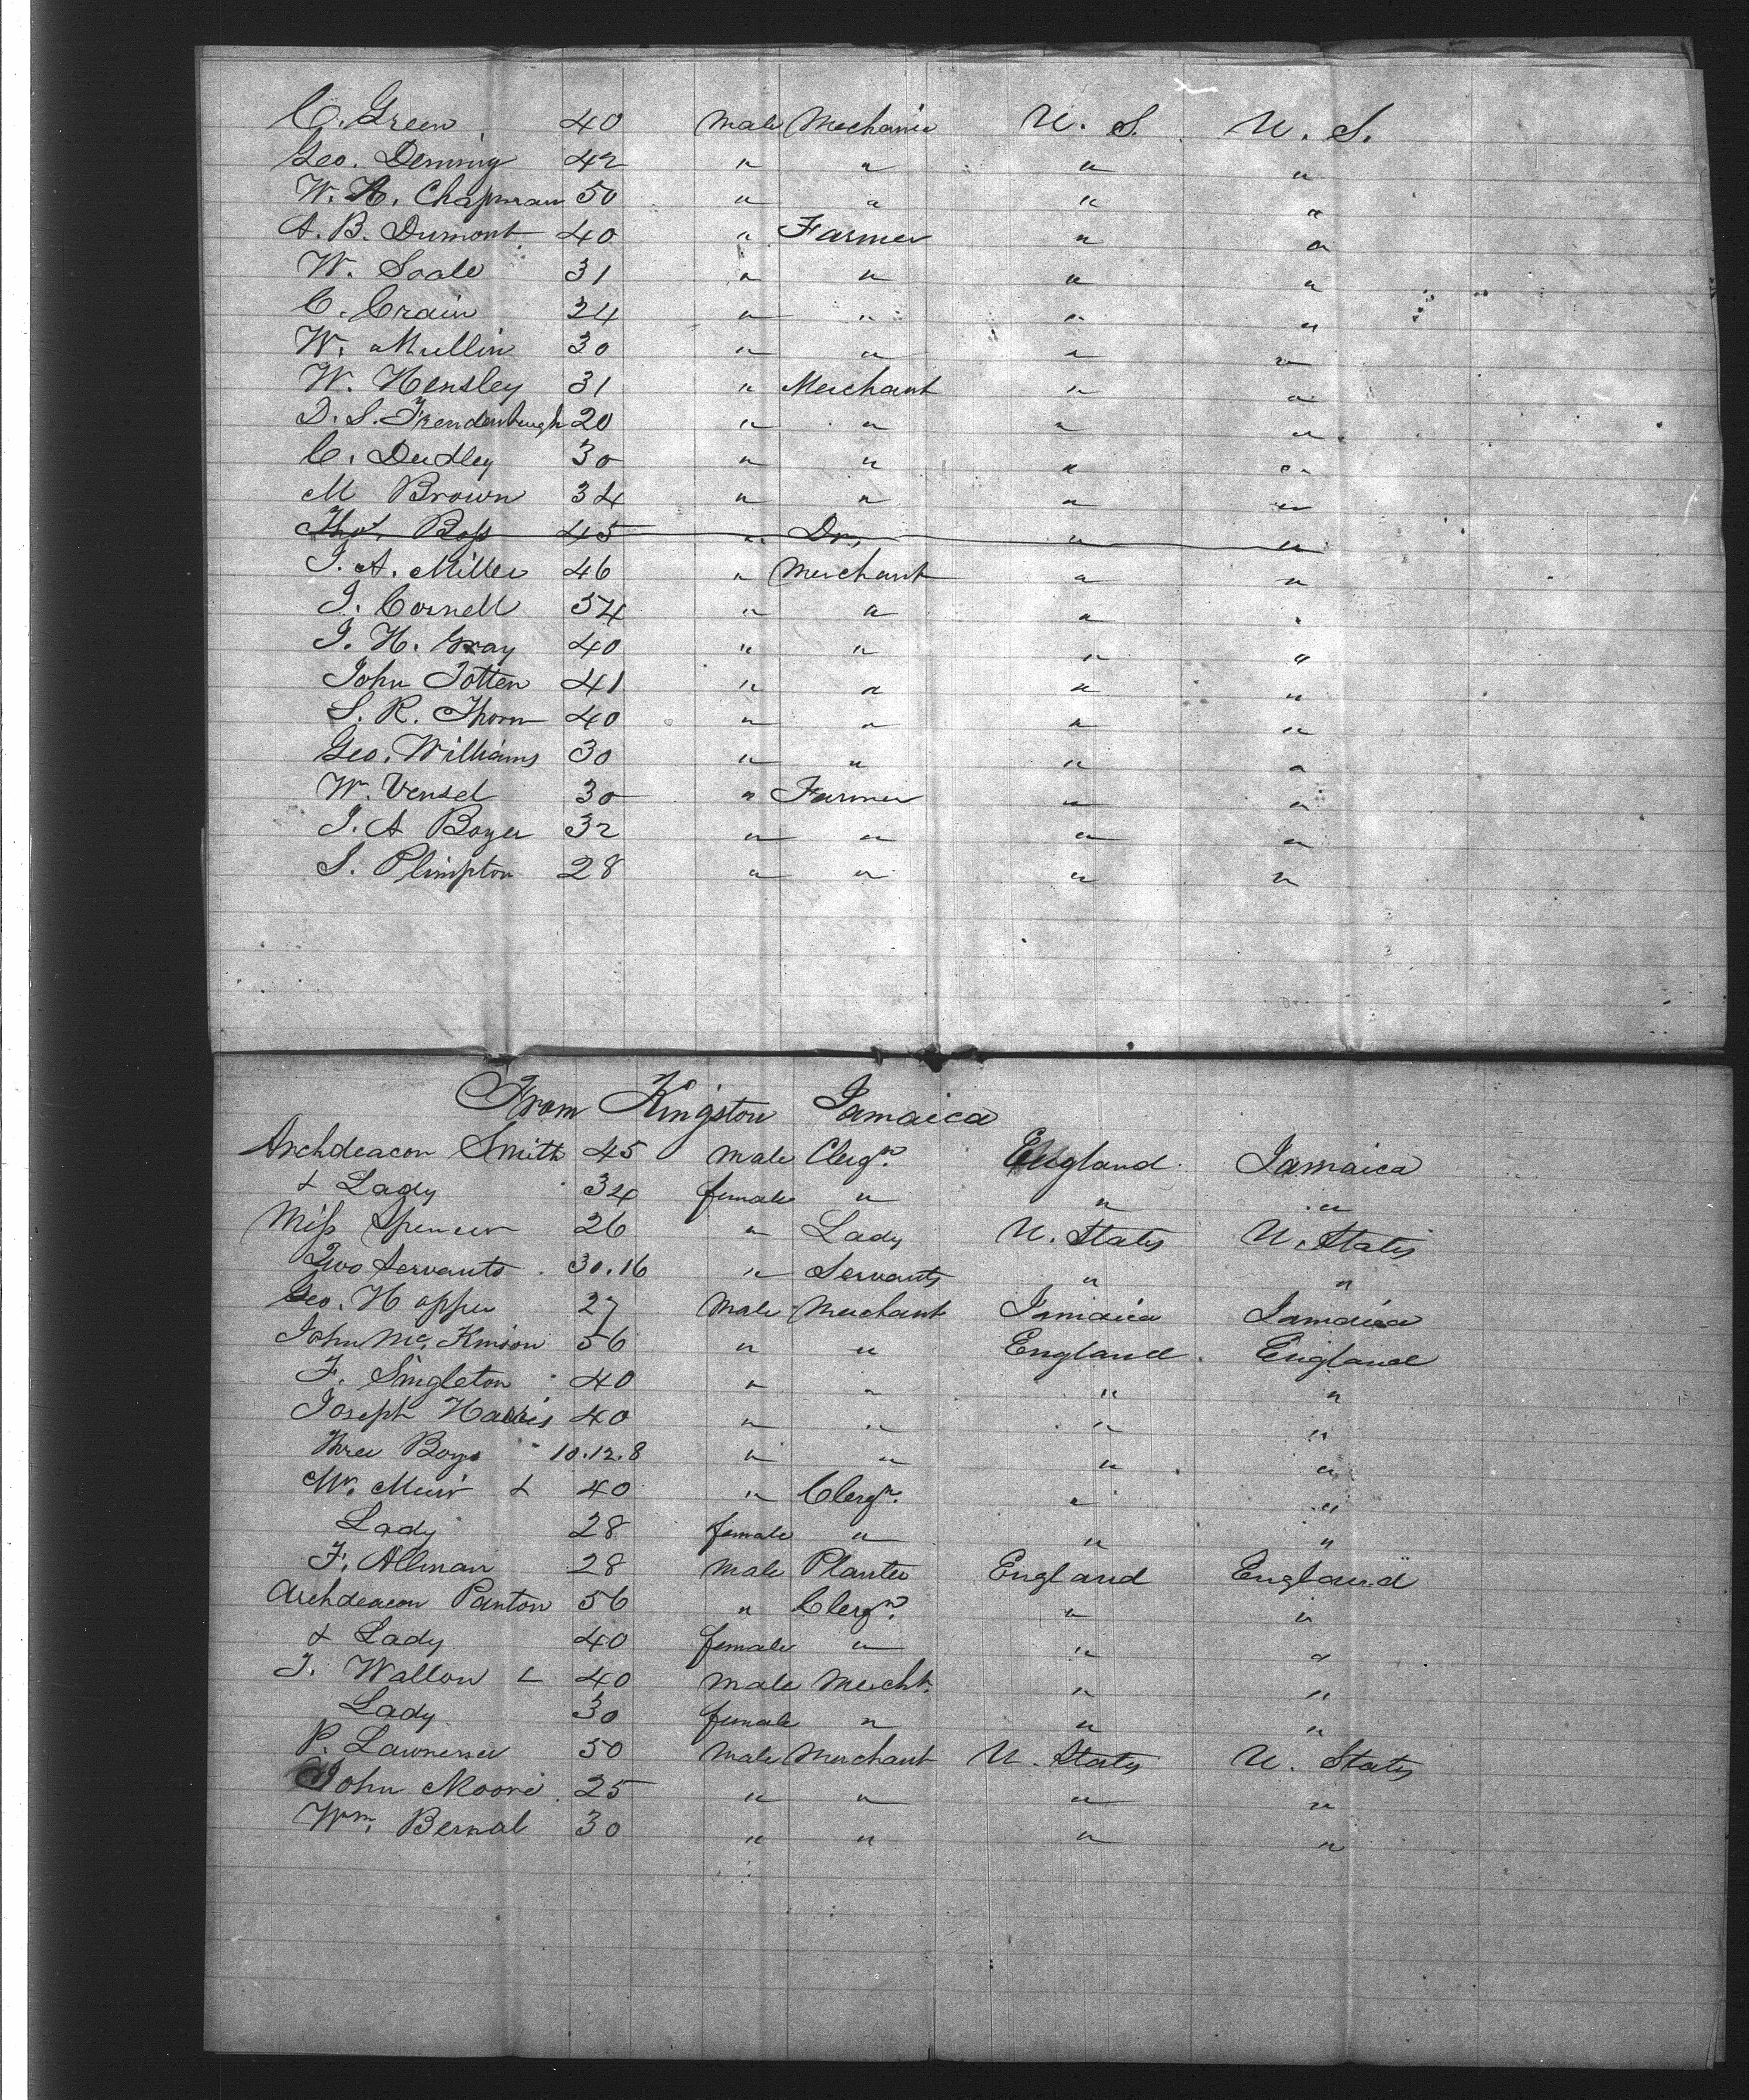 C. Green 40 Male Mechanic U. S. U. S.
Geo. Deming 42 " " " "
W. H. Chapman 50 " " " "
A. B. Dumont 40 " Farmer " "
W. Soale 31 " " " "
C. Crain 24 " " " "
W. Mullin 30 " " " "
W. Hensley 31 " Merchant " "
D. S. 20 " " " "
C. Dudley 30 " " " "
M Brown 34 " " " "
Thos. Boss 45 " Dr, " "
J. A. Miller 46 " Merchant " "
J. Cornell 34 " " " "
J. H. Gray 40 " " " "
John Totten 41 " " " "
S. R. Thorn 40 " " " "
Geo. Williams 30 " " " "
W. Vensel 30 " Farmer " "
J. A Boyer 32 " " " "
S. Plimpton 28 " " " "
From Kingston Jamaica
Archdeacon Smith 45 Male Clergn. England Jamaica
& Lady 34 female " " "
Miss Spencer 26 " Lady U. States U. States
Two Servants 30.16 " Servants " "
Geo. Hopper 27 Male Merchant Jamaica Jamaica
John Mc. Kinion 56 " " England England
F. Singleton 40 " " " "
Joseph Harris 40 " " " "
Three Boys 10.12.8 " " " "
W. Muir & 40 " Clergn. " "
Lady 28 female " " "
F. Allman 28 Male Planter England England
Archdeacon Panton 56 " Clergn. " "
& Lady 40 female " " "
J. Wallon & 40 Male Mercht. " "
Lady 30 female " " "
P. 50 Male Merchant U. States U. States
John Moore 25 " " " "
Wm. Bernal 30 " " " "